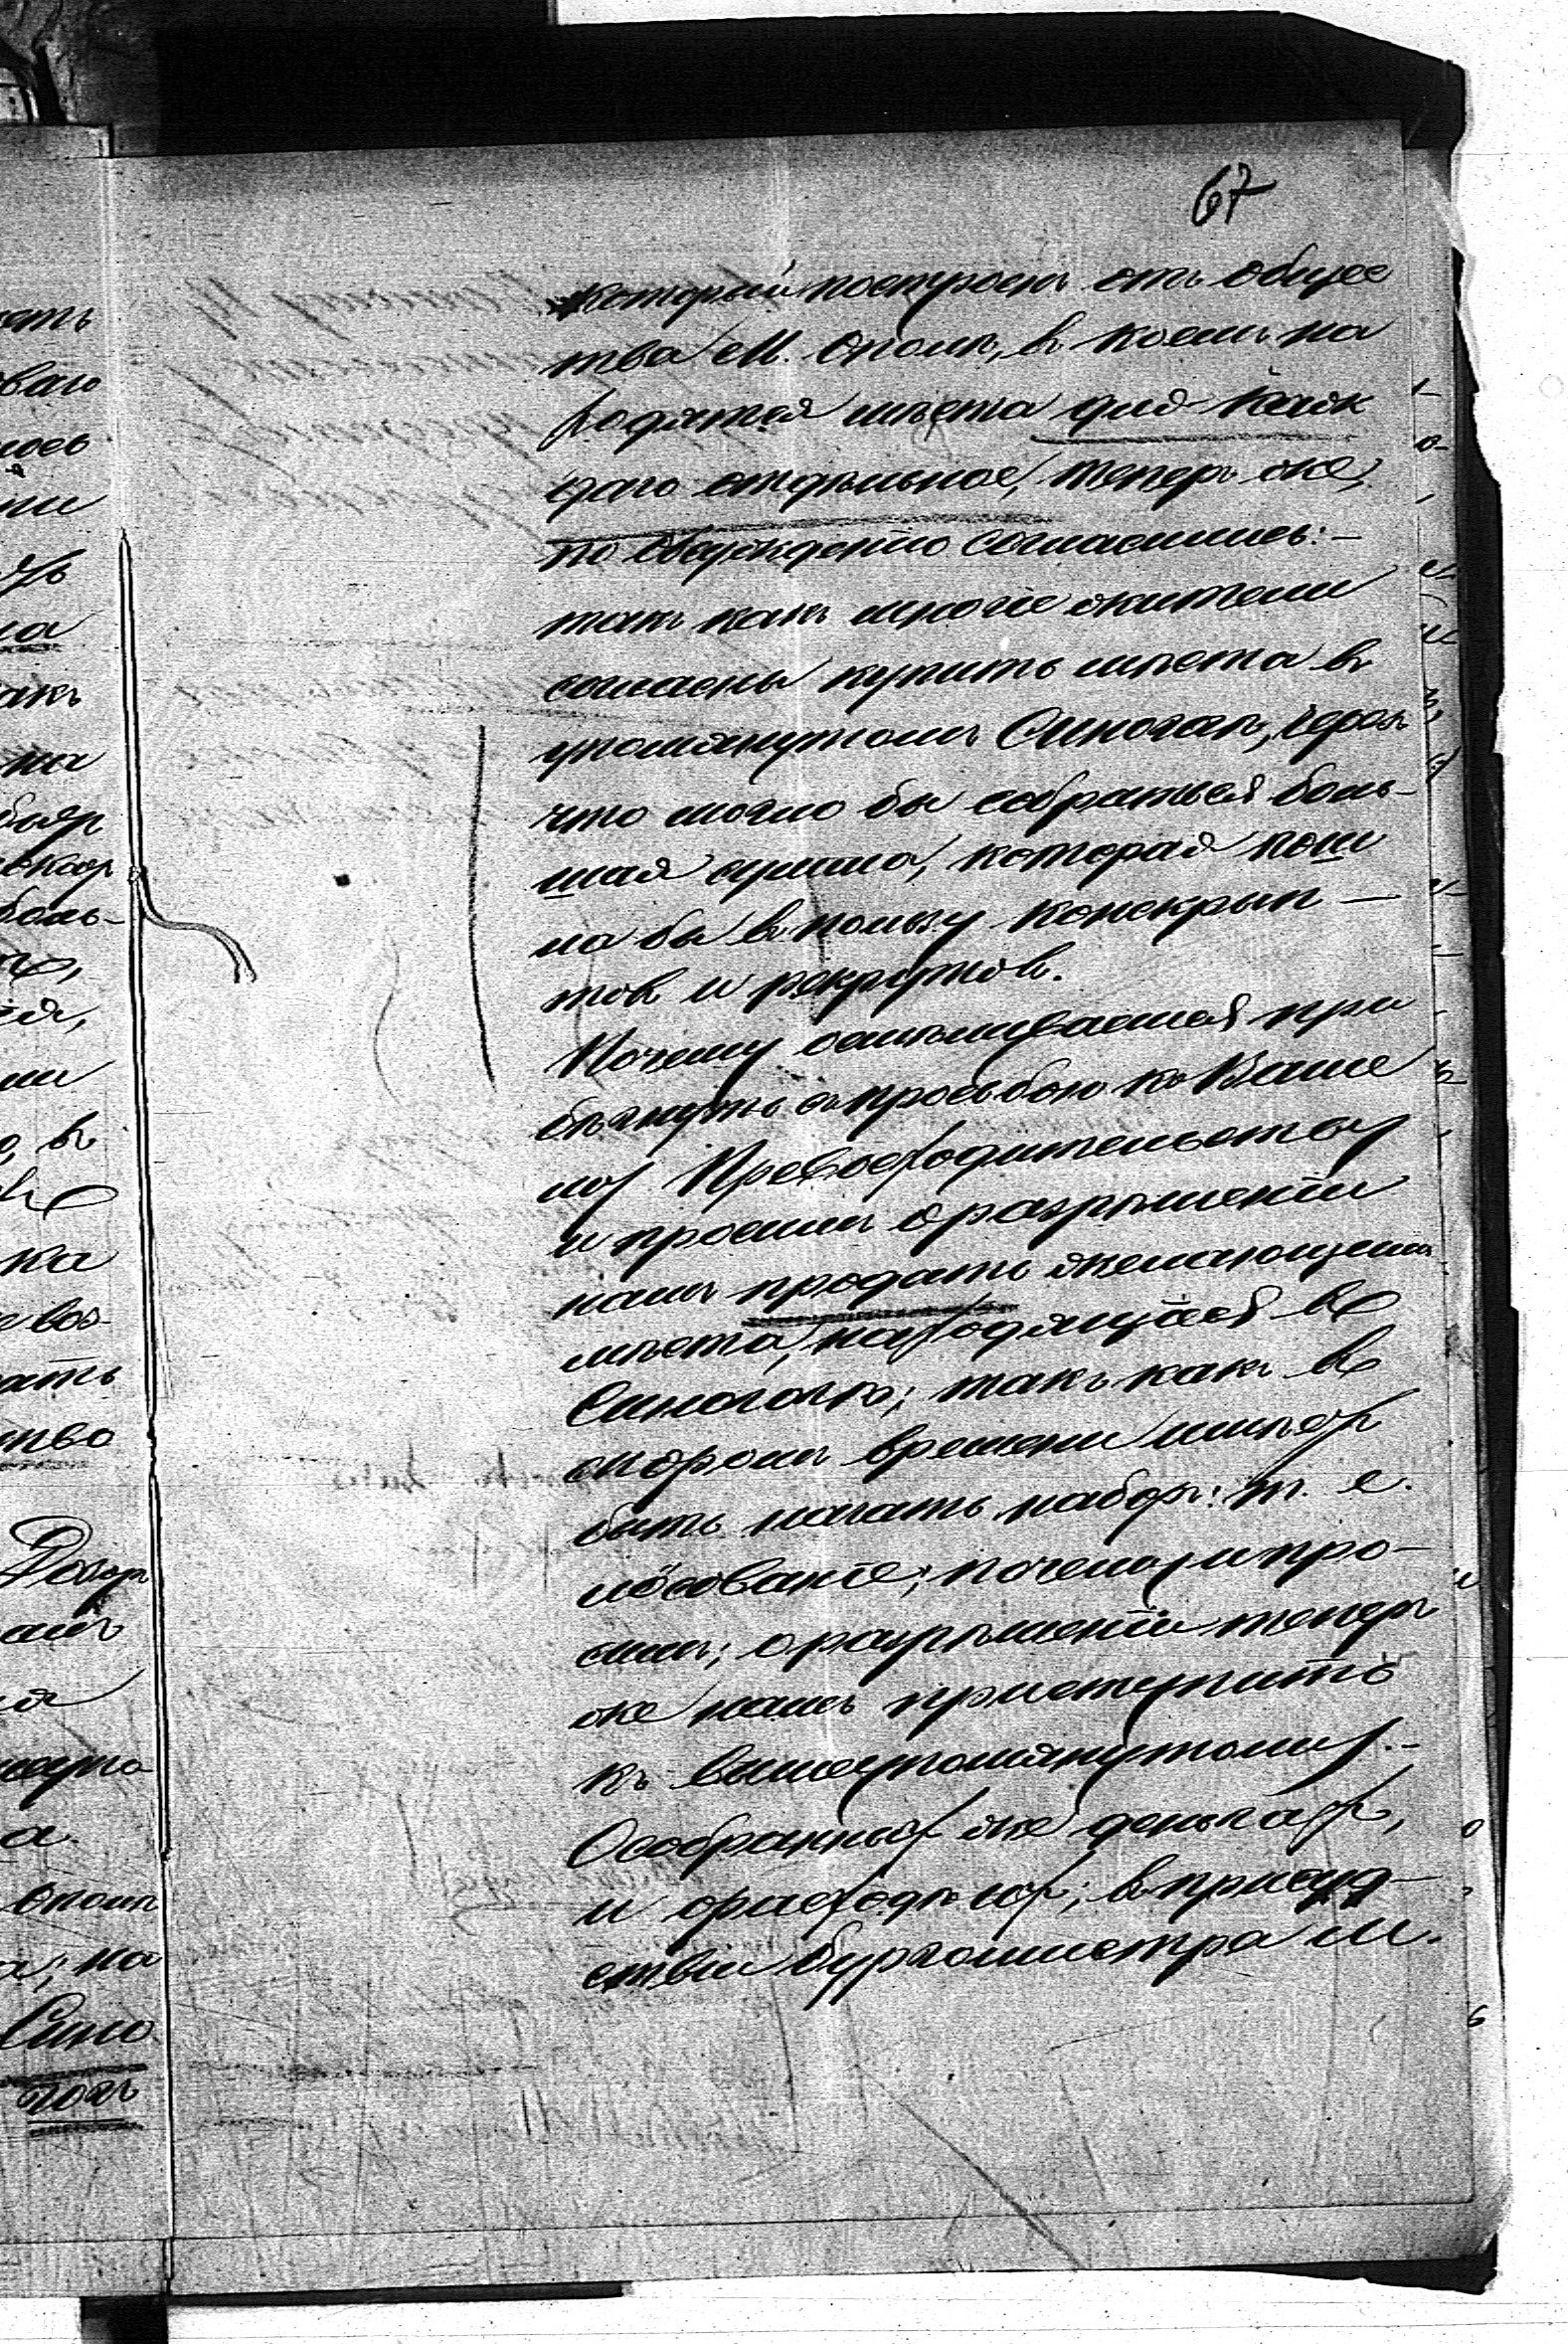 67
который построенъ отъ общес
тва М. Ополя, въ коемъ на
ходятся мѣста для каж
даго отдѣльное, теперь же,
по обсужденію согласились:-
такъ какъ многіе жители
согласны купить мѣста въ
упомянутомъ Синогагѣ, черезъ
что могло бы собраться боль-
шая сумма, которая пош
ла бы въ пользу конскрып-
товъ и рекрутовъ.
Почему осмѣливаемся при
бѣгнуть съ просьбою къ Ваше
му Превосходительству
и просимъ о разрѣшеніи
намъ продать желающимъ
мѣста, находящіяся въ
Синогогѣ; такъ какъ въ
скоромъ времени имѣетъ
быть начатъ наборъ: т. е.
лёсованіе; почему и про-
симъ; о разрѣшеніи теперь
же намъ приступить
къ вышеупомянутому.-
О собранныхъ же деньгахъ,
и о расходѣ ихъ; въ присуд-
ствіи бургомистра М.